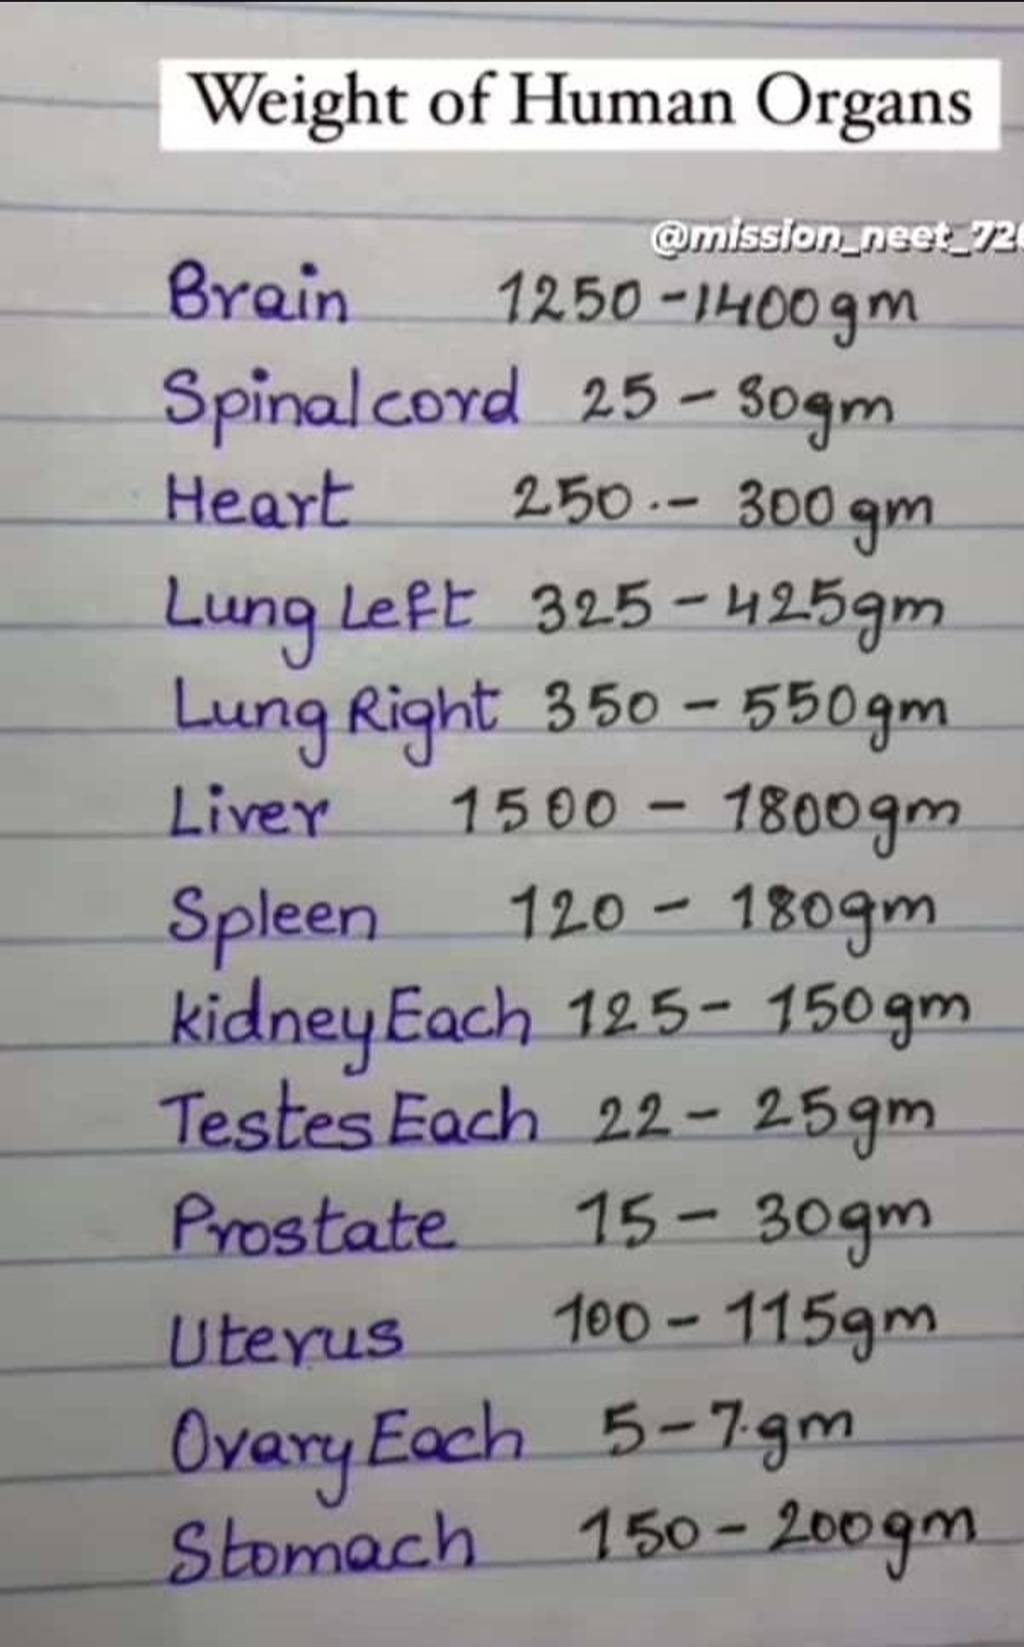 Weight of Human Organs
@mission_neet_720
Brain 1250-1400gm
Spinal cord 25-30gm
Heart 250.- 300gm
Lung Left 325-425gm
Lung Right 350-550gm
Liver 1500 - 1800gm
Spleen 120 - 180gm
kidney Each 125- 150gm
Testes Each 22- 25gm
Prostate 15- 30gm
Uterus 100-115gm
Ovary Each 5-7.gm
Stomach 150-200gm